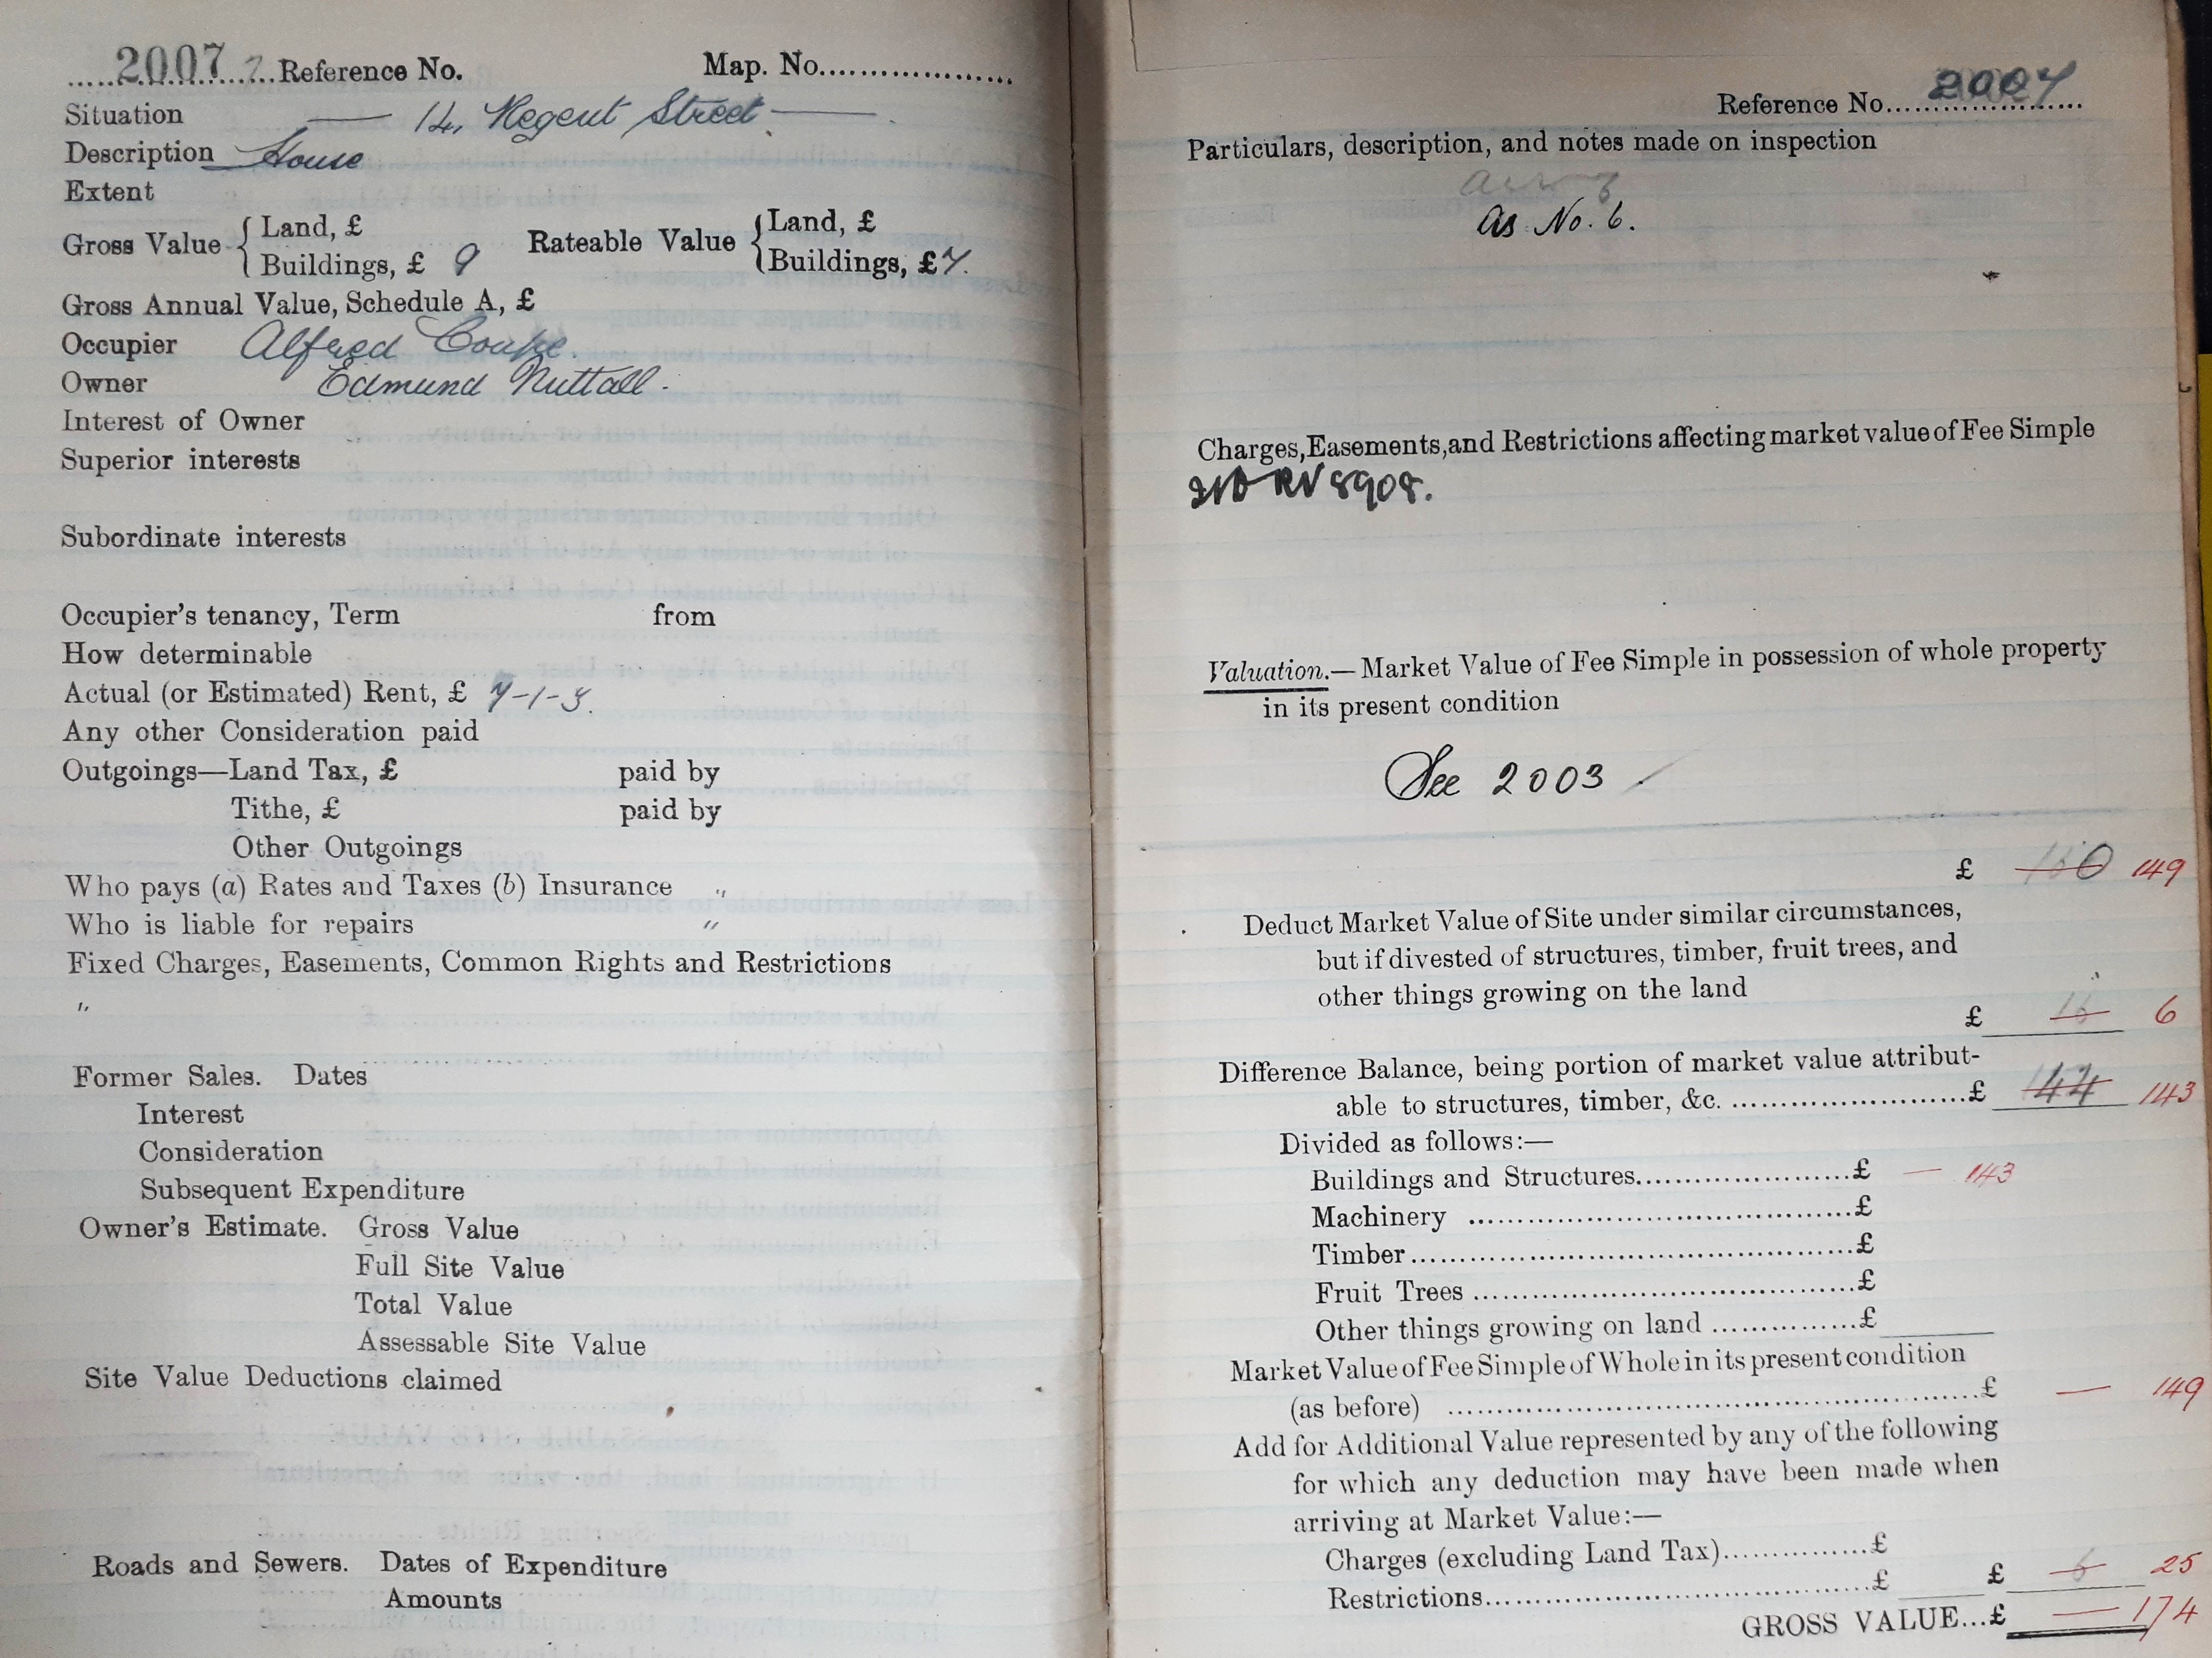 2007 Reference No. Map. No.
Situation — 14, Regent Street —
Description House
Extent
Gross Value { Land, £ Rateable Value { Land, £
Buildings, £ 9 Buildings, £ 7.
Gross Annual Value, Schedule A, £
Occupier Alfred Coupe.
Owner Edmund Nuttall.
Interest of Owner
Superior interests
Subordinate interests
Occupier's tenancy, Term from
How determinable
Actual (or Estimated) Rent, £ 7-1-3.
Any other Consideration paid
Outgoings—Land Tax, £ paid by
Tithe, £ paid by
Other Outgoings
Who pays (a) Rates and Taxes (b) Insurance "
Who is liable for repairs "
Fixed Charges, Easements, Common Rights and Restrictions
"
Former Sales. Dates
Interest
Consideration
Subsequent Expenditure
Owner's Estimate. Gross Value
Full Site Value
Total Value
Assessable Site Value
Site Value Deductions claimed
Roads and Sewers. Dates of Expenditure
Amounts
Reference No. 2007
Particulars, description, and notes made on inspection
as No. 6.
Charges, Easements, and Restrictions affecting market value of Fee Simple
RV 8908.
Valuation.—Market Value of Fee Simple in possession of whole property
in its present condition
See 2003
£ 149
Deduct Market Value of Site under similar circumstances,
but if divested of structures, timber, fruit trees, and
other things growing on the land
£ 6
Difference Balance, being portion of market value attribut-
able to structures, timber, &c. £ 144 143
Divided as follows:—
Buildings and Structures £ — 143
Machinery £
Timber £
Fruit Trees £
Other things growing on land £
Market Value of Fee Simple of Whole in its present condition
(as before) £ — 149
Add for Additional Value represented by any of the following
for which any deduction may have been made when
arriving at Market Value:—
Charges (excluding Land Tax) £
Restrictions £ £ 6 25
GROSS VALUE...£ — 174